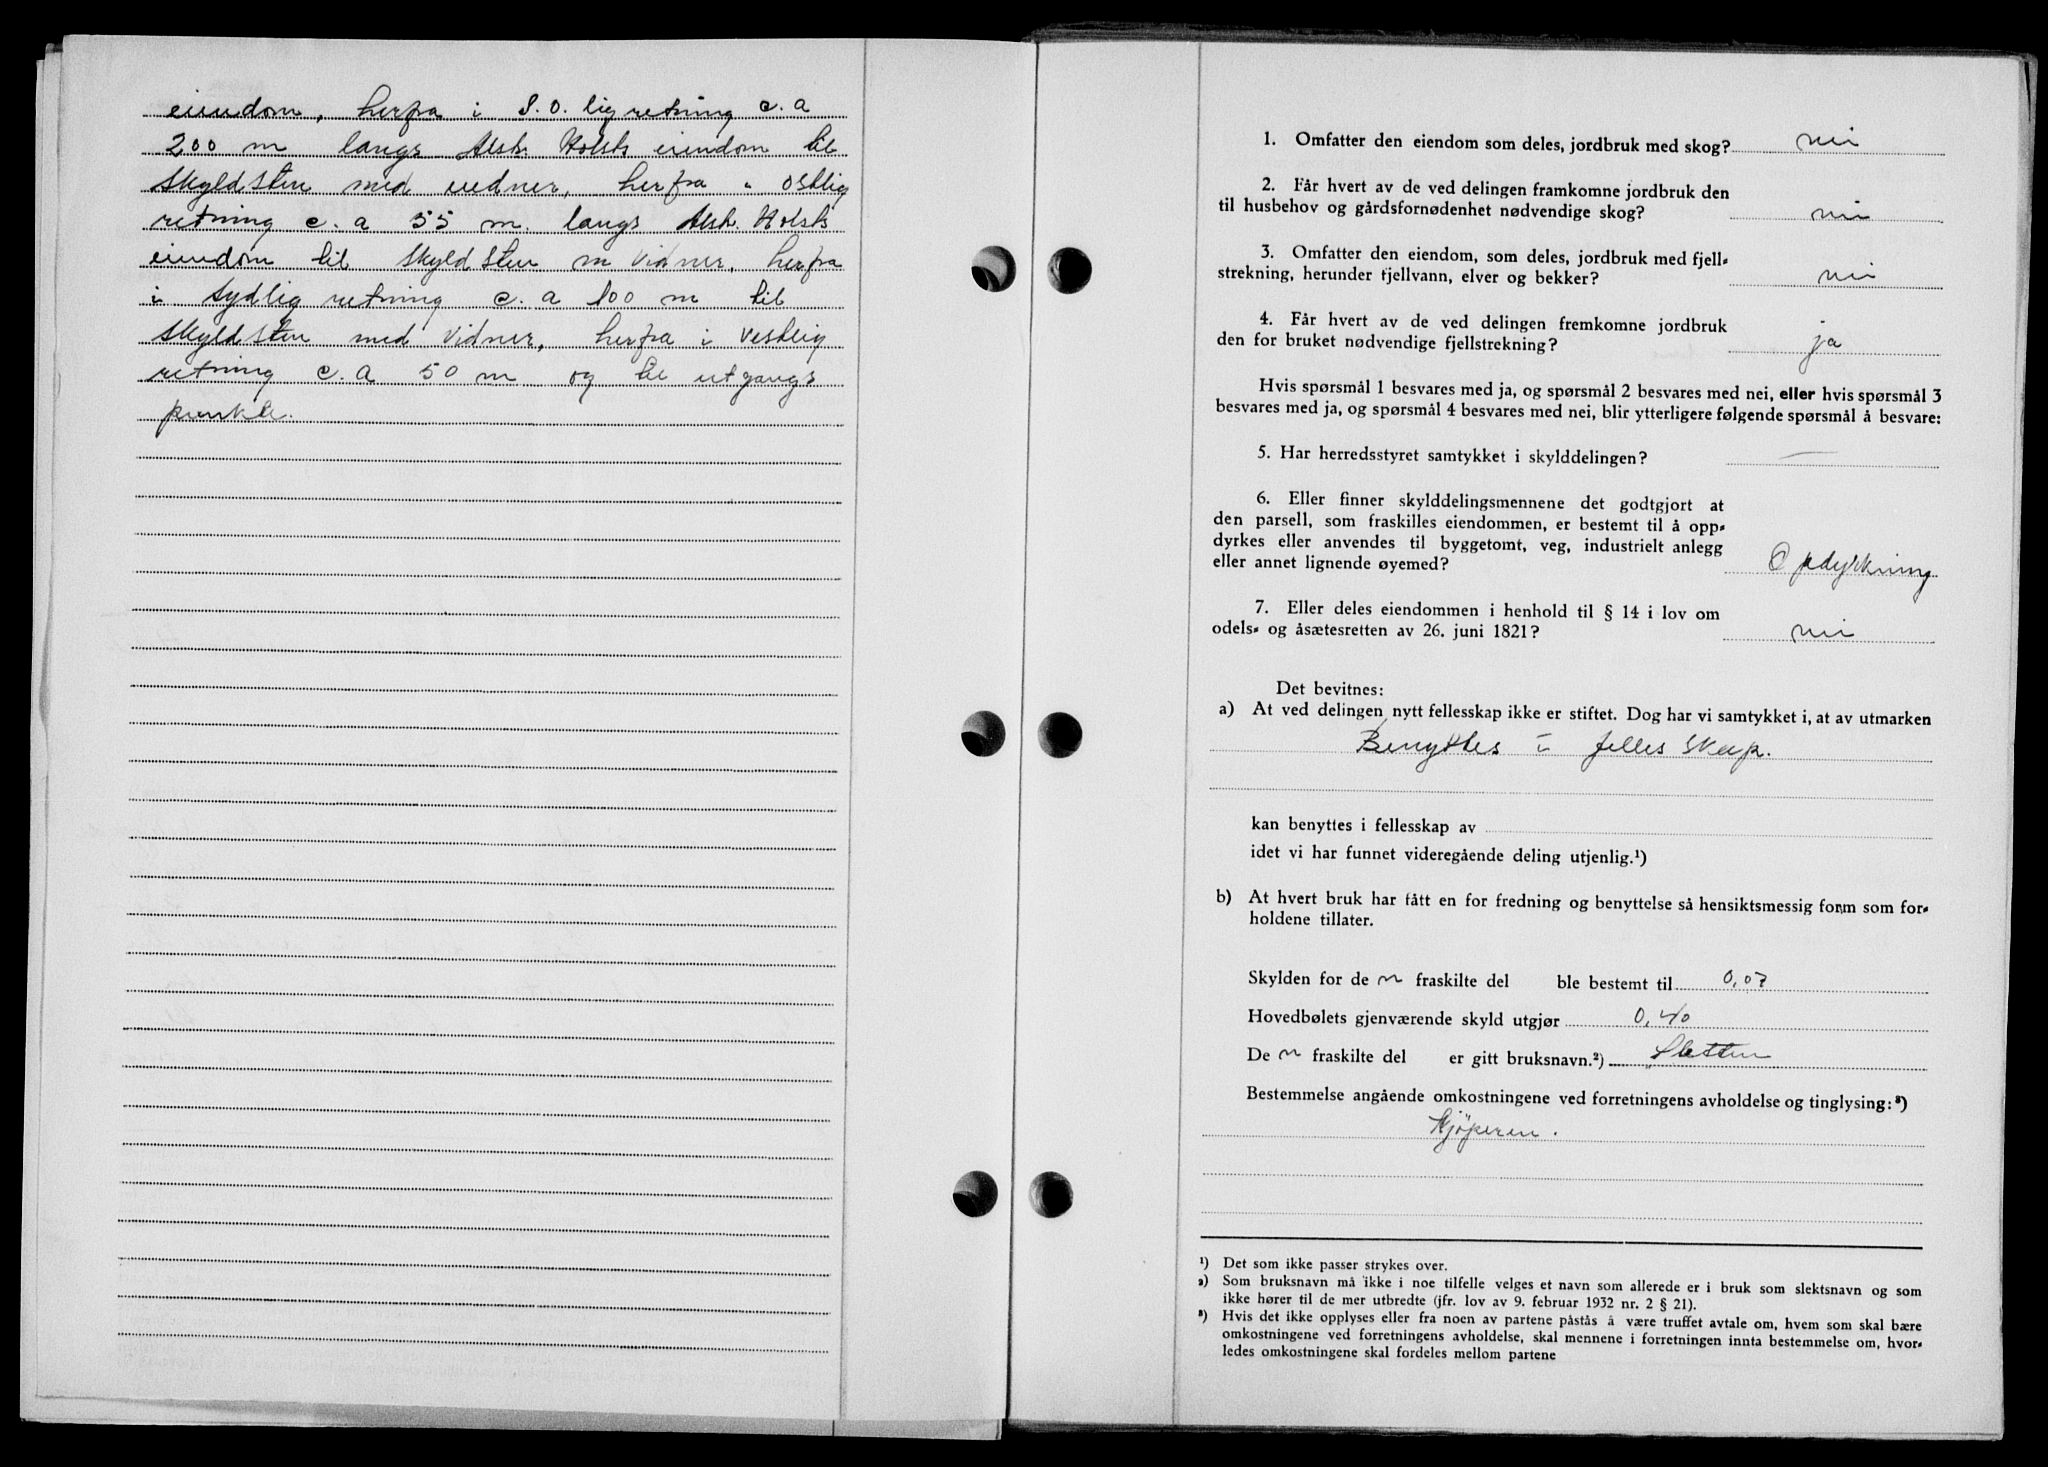 eiendom, herfra i S.O. lig retning c. a
200 m langs Alsk. Holsts eiendom til
Skyldsten med vidner, herfra i ostlig
retning c. a 55 m. langs Alsk. Holsts
eiendom til Skyldsten m Vidner, herfra
i sydlig retning c. a 100 m til
Skyldsten med Vidner, herfra i vestlig
retning c. a 50 m og til utgangs
punkte.
1. Omfatter den eiendom som deles, jordbruk med skog? nei
2. Får hvert av de ved delingen framkomne jordbruk den
til husbehov og gårdsfornødenhet nødvendige skog? nei
3. Omfatter den eiendom, som deles, jordbruk med fjell-
strekning, herunder fjellvann, elver og bekker? nei
4. Får hvert av de ved delingen fremkomne jordbruk
den for bruket nødvendige fjellstrekning? ja
Hvis spørsmål 1 besvares med ja, og spørsmål 2 besvares med nei, eller hvis spørsmål 3
besvares med ja, og spørsmål 4 besvares med nei, blir ytterligere følgende spørsmål å besvare:
5. Har herredsstyret samtykket i skylddelingen? —
6. Eller finner skylddelingsmennene det godtgjort at
den parsell, som fraskilles eiendommen, er bestemt til å opp-
dyrkes eller anvendes til byggetomt, veg, industrielt anlegg
eller annet lignende øyemed? Opdyrkning
7. Eller deles eiendommen i henhold til § 14 i lov om
odels- og åsætesretten av 26. juni 1821? nei
Det bevitnes:
a) At ved delingen nytt fellesskap ikke er stiftet. Dog har vi samtykket i, at av utmarken
Benyttes i felles Skap.
kan benyttes i fellesskap av
idet vi har funnet videregående deling utjenlig.¹)
b) At hvert bruk har fått en for fredning og benyttelse så hensiktsmessig form som for-
holdene tillater.
Skylden for de n fraskilte del ble bestemt til 0,07
Hovedbølets gjenværende skyld utgjør 0,40
De n fraskilte del er gitt bruksnavn.²) Sletten
Bestemmelse angående omkostningene ved forretningens avholdelse og tinglysing:³)
Kjöperen.
¹) Det som ikke passer strykes over.
²) Som bruksnavn må ikke i noe tilfelle velges et navn som allerede er i bruk som slektsnavn og som
ikke hører til de mer utbredte (jfr. lov av 9. februar 1932 nr. 2 § 21).
³) Hvis det ikke opplyses eller fra noen av partene påstås å være truffet avtale om, hvem som skal bære
omkostningene ved forretningens avholdelse, skal mennene i forretningen innta bestemmelse om, hvor-
ledes omkostningene skal fordeles mellom partene